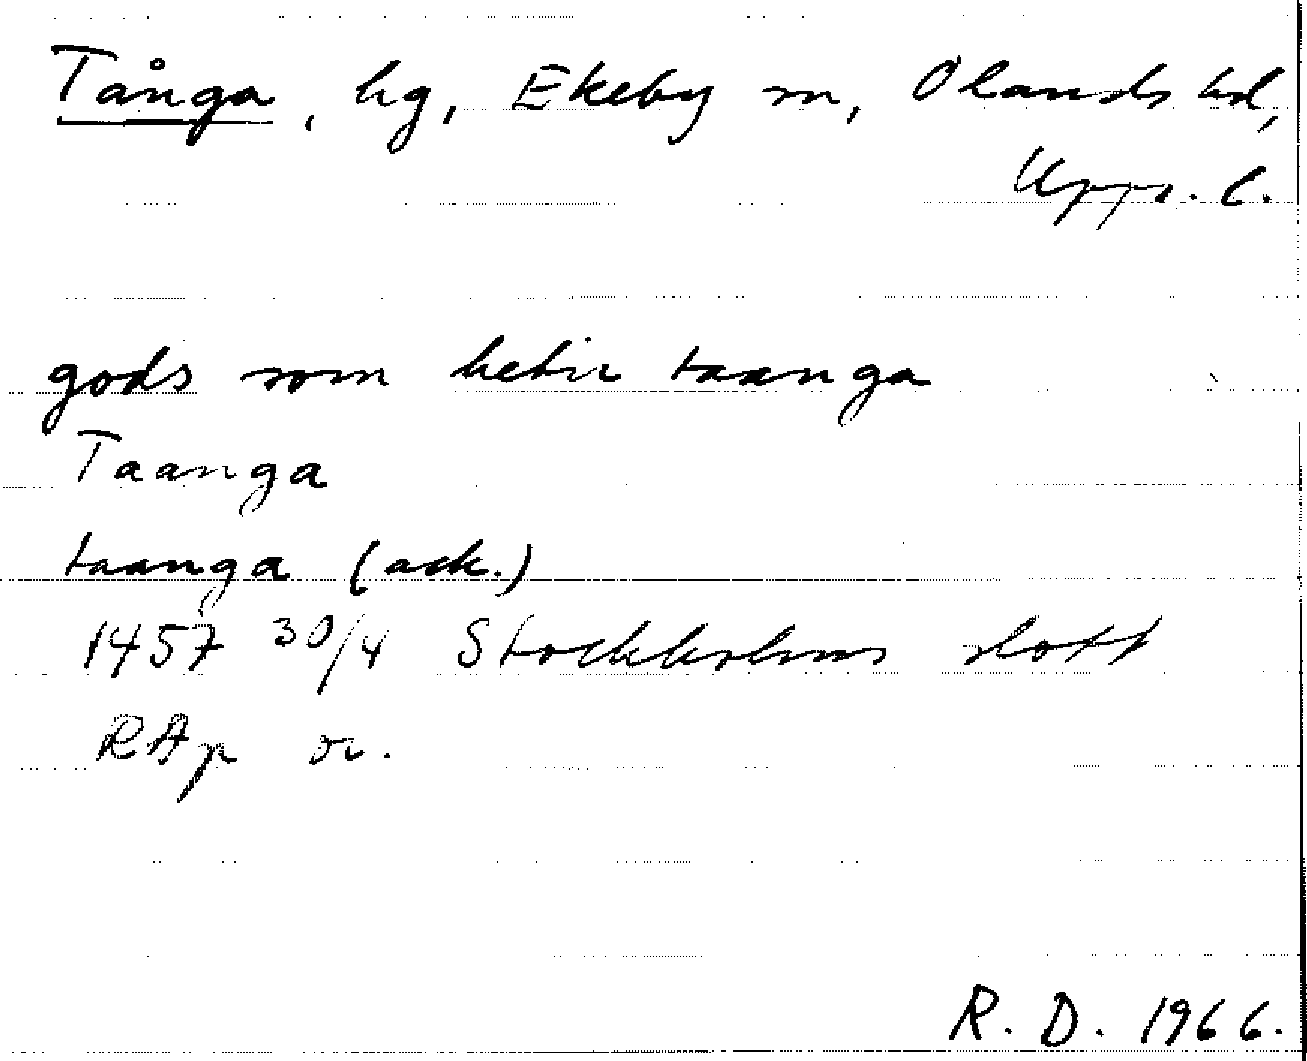 Tånga, hg, Ekeby sn, Olands hd,
Upps. l.
gods som hetir taanga
Taanga
taanga (ack.)
1457 30/4 Stockholms slott
RAp or.
R. D. 1966.